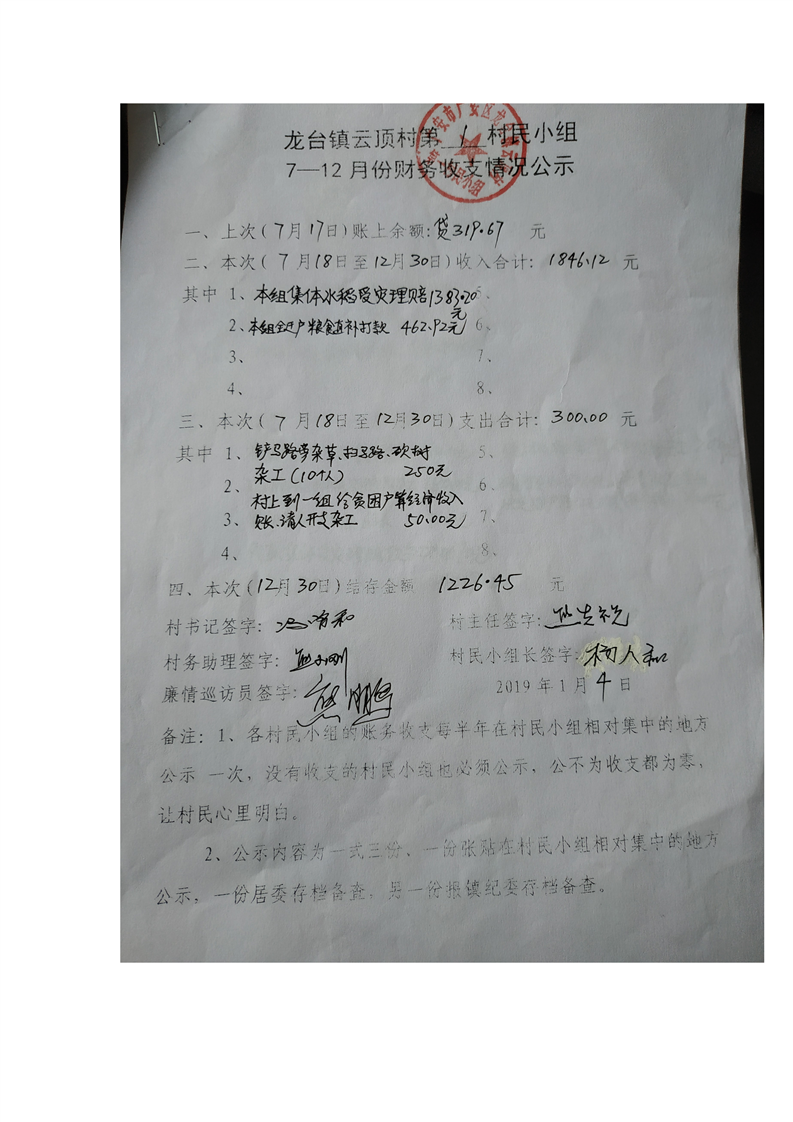 龙台镇云顶村第 1 村民小组
7—12月份财务收支情况公示
一、上次(7月17日)账上余额:贷319.67 元
二、本次(7月18日至12月30日)收入合计:1846.12 元
其中 1、本组集体水稻受灾理赔1383.20元 5、
2、本组全进户粮食直补打款 462.92元 6、
3、 7、
4、 8、
三、本次(7月18日至12月30日)支出合计:300.00 元
其中 1、铲马路旁杂草、扫马路、砍树 5、
2、杂工(10个人) 250元 6、
村上到一组给贫困户算经济收入
3、账、请人开支杂工 50.00元 7、
4、 8、
四、本次(12月30日)结存金额 1226.45 元
村书记签字: 村主任签字:
村务助理签字: 村民小组长签字:
廉情巡访员签字:熊鹏 2019年1月4日
备注:1、各村民小组的账务收支每半年在村民小组相对集中的地方
公示 一次,没有收支的村民小组也必须公示,公不为收支都为零,
让村民心里明白。
2、公示内容为一式三份、一份张贴在村民小组相对集中的地方
公示,一份居委存档备查,另一份报镇纪委存档备查。